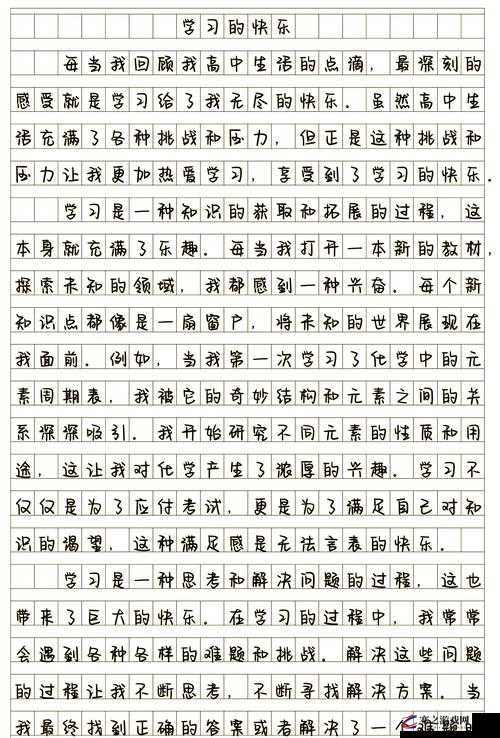 学习的快乐
每当我回顾我高中生活的点滴，最深刻的
感受就是学习给了我无尽的快乐．虽然高中生
活充满了各种挑战和压力，但正是这种挑战和
压力让我更加热爱学习，享受到了学习的快乐．
学习是一种知识的获取和拓展的过程，这
本身就充满了乐趣．每当我打开一本新的教材，
探索未知的领域，我都感到一种兴奋．每个新
知识点都像是一扇窗户，将未知的世界展现在
我面前．例如，当我第一次学习了化学中的元
素周期表，我被它的奇妙结构和元素之间的关
系深深吸引．我开始研究不同元素的性质和用
途，这让我对化学产生了浓厚的兴趣．学习不
仅仅是为了应付考试，更是为了满足自己对知
识的渴望，这种满足感是无法言表的快乐．
学习是一种思考和解决问题的过程，这也
带来了巨大的快乐．在学习的过程中，我常常
会遇到各种各样的难题和挑战．解决这些问题
的过程让我不断思考，不断寻找解决方案．当
我最终找到正确的答案或者解决了一个难题时